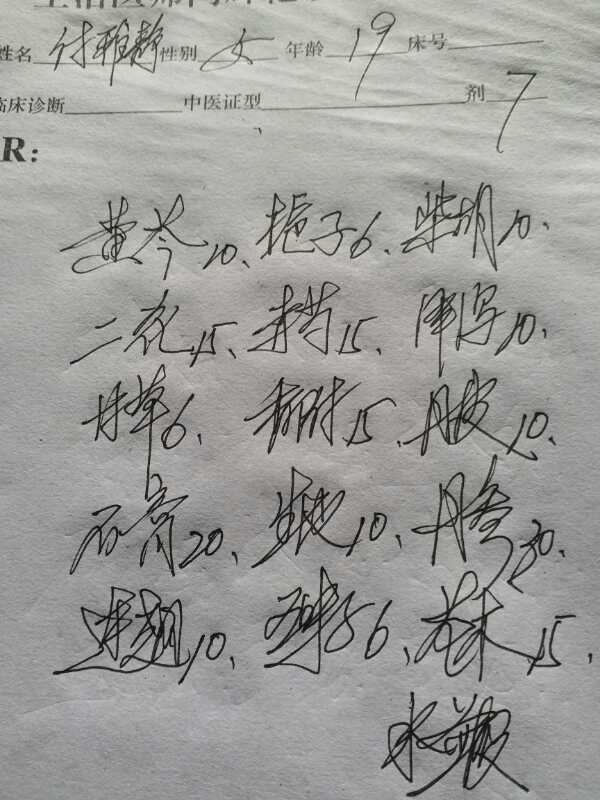 姓名 付雅静 性别 女 年龄 19 床号
临床诊断 中医证型 剂 7
R:
黄芩10、栀子6、柴胡10、
二花15、赤芍15、泽泻10、
甘草6、香附15、丹皮10、
石膏20、生地10、丹参30、
连翘10、6、苍术15、
水煎服